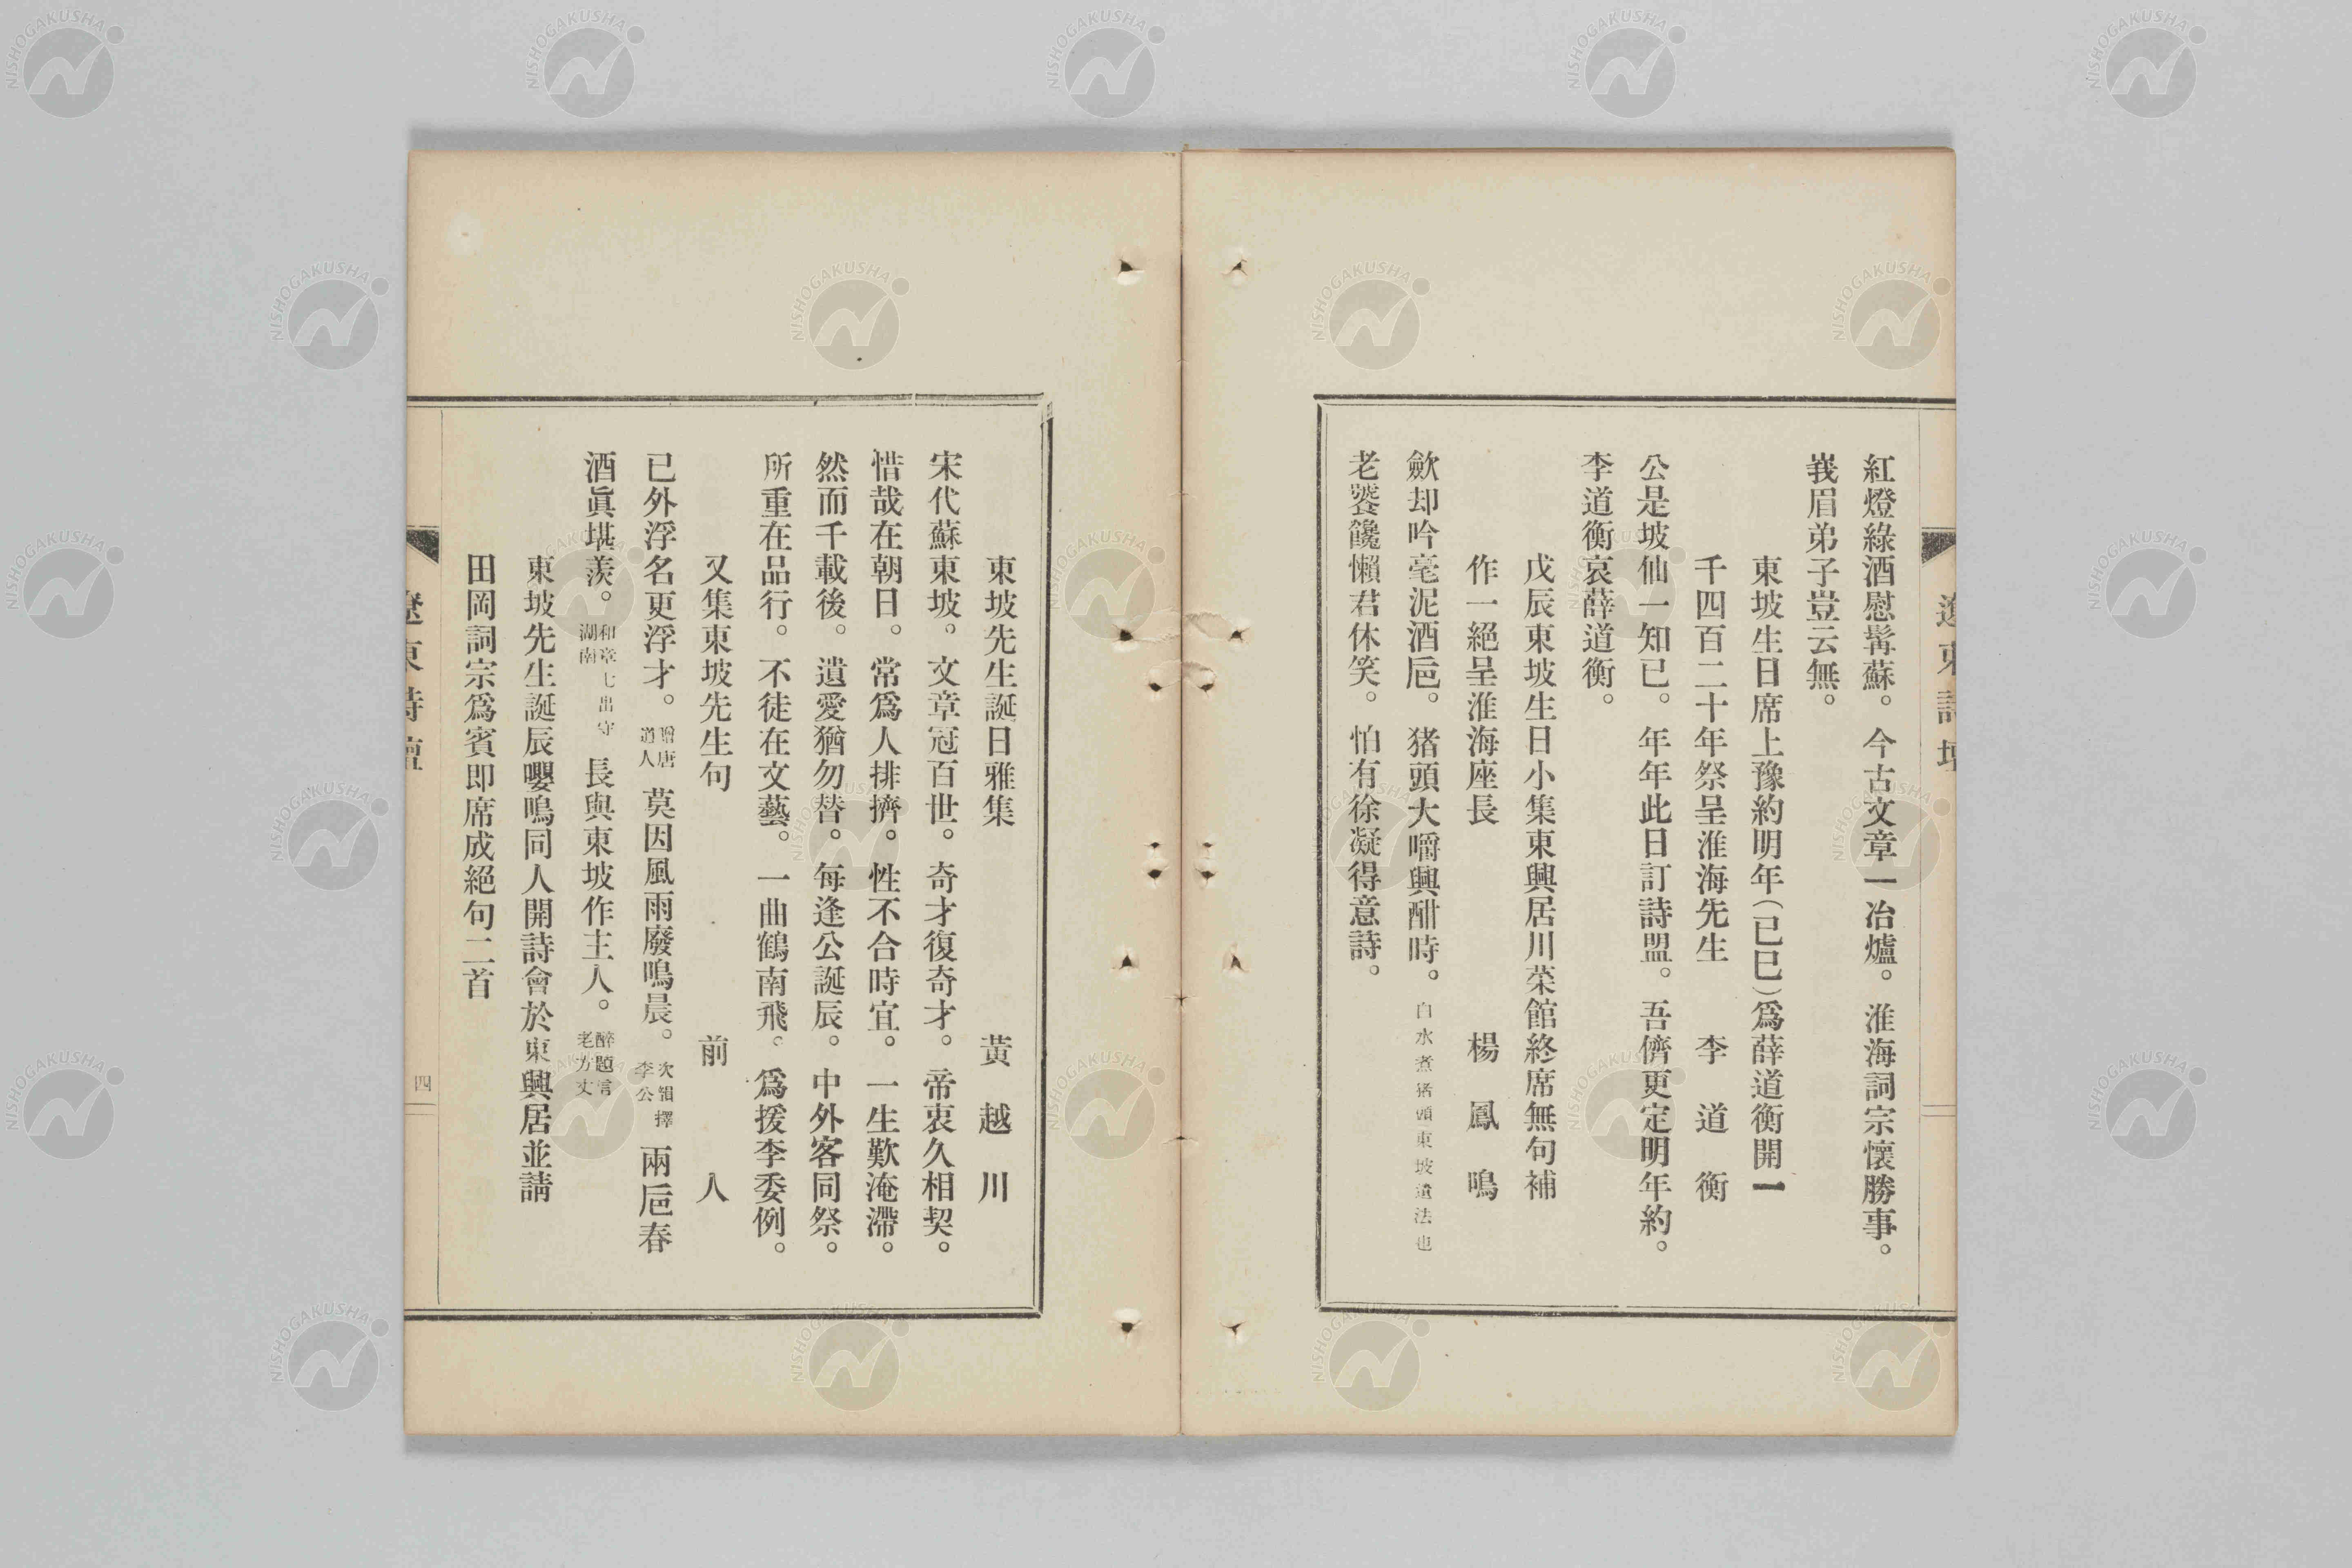 紅燈綠酒慰髯蘇。今古文章一冶爐。淮海詞宗懷勝事。
峩眉弟子豈云無。
東坡生日席上豫約明年(己巳)爲薛道衡開一
千四百二十年祭呈淮海先生　李道衡
公是坡仙一知已。年年此日訂詩盟。吾儕更定明年約。
李道衡哀薛道衡。
戊辰東坡生日小集東興居川菜館終席無句補
作一絕呈淮海座長　楊鳳鳴
歛却吟毫泥酒巵。猪頭大嚼興酣時。白水煮猪頭東坡遺法也
老饕饞懶君休笑。怕有徐凝得意詩。
遼東詩壇
東坡先生誕日雅集　黃越川
宋代蘇東坡。文章冠百世。奇才復奇才。帝衷久相契。
惜哉在朝日。常爲人排擠。性不合時宜。一生歎淹滯。
然而千載後。遺愛猶勿替。每逢公誕辰。中外客同祭。
所重在品行。不徒在文藝。一曲鶴南飛。爲援李委例。
又集東坡先生句　前人
已外浮名更浮才。贈唐道人　莫因風雨廢鳴晨。次韻李公擇　兩巵春
酒眞堪羨。和章七出守湖南　長與東坡作主人。醉題信老方丈
東坡先生誕辰嚶鳴同人開詩會於東興居並請
田岡詞宗爲賓即席成絕句二首
遼東詩壇
四
NISHOGAKUSHA